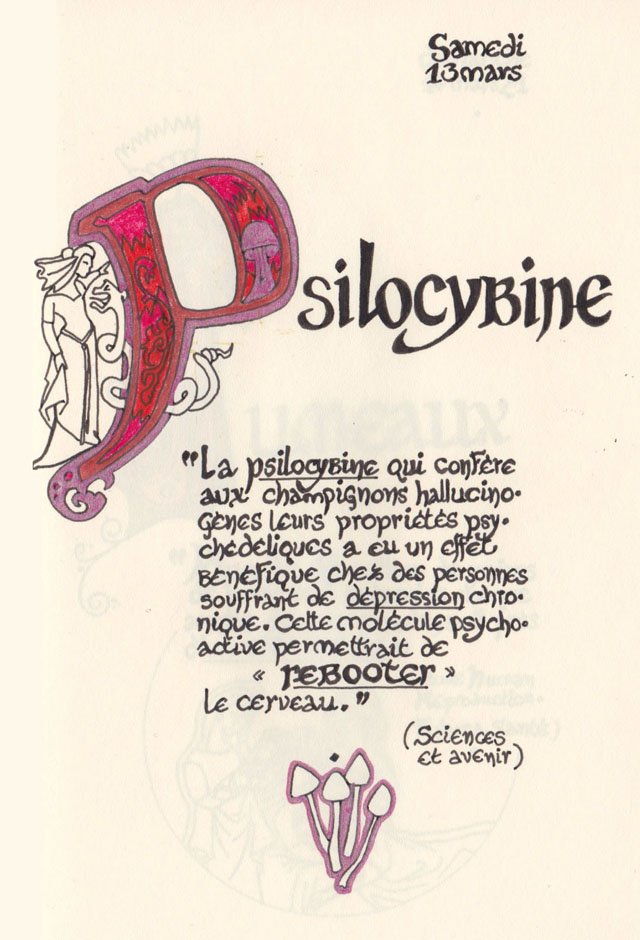 Samedi
13 mars
Psilocybine
"La psilocybine qui confère
aux champignons hallucino-
gènes leurs propriétés psy-
chédéliques a eu un effet
bénéfique chez des personnes
souffrant de dépression chro-
nique. Cette molécule psycho-
active permettrait de
« rebooter »
le cerveau."
(Sciences
et avenir)